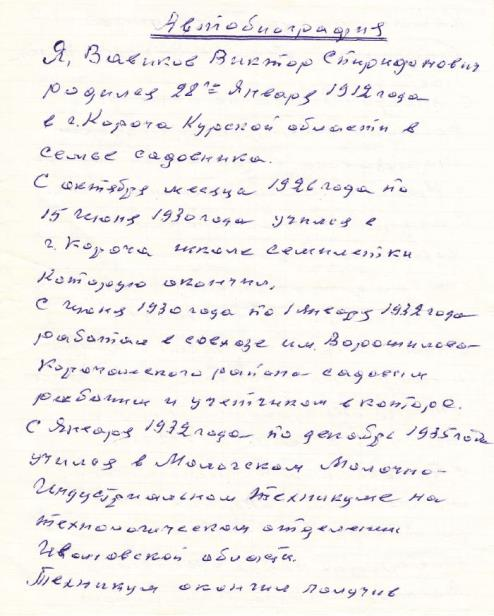 Автобиография
Я, Вавиков Виктор Спиридонович
родился 22го Января 1912 года
в г. Короча Курской области в
семье садовника.
С октября месяца 1926 года по
15 июня 1930 года учился в
г. Короча школе семилетки
которую окончил.
С июня 1930 года по 1 Января 1932 года
работал в совхозе им. Ворошилова
Корочанского района садовым
рабочим и учетчиком в конторе.
С Января 1932 года по декабрь 1935 года
учился в Мологском Молочно-
Индустриальном техникуме на
технологическом отделении
Ивановской области.
Техникум окончил получив